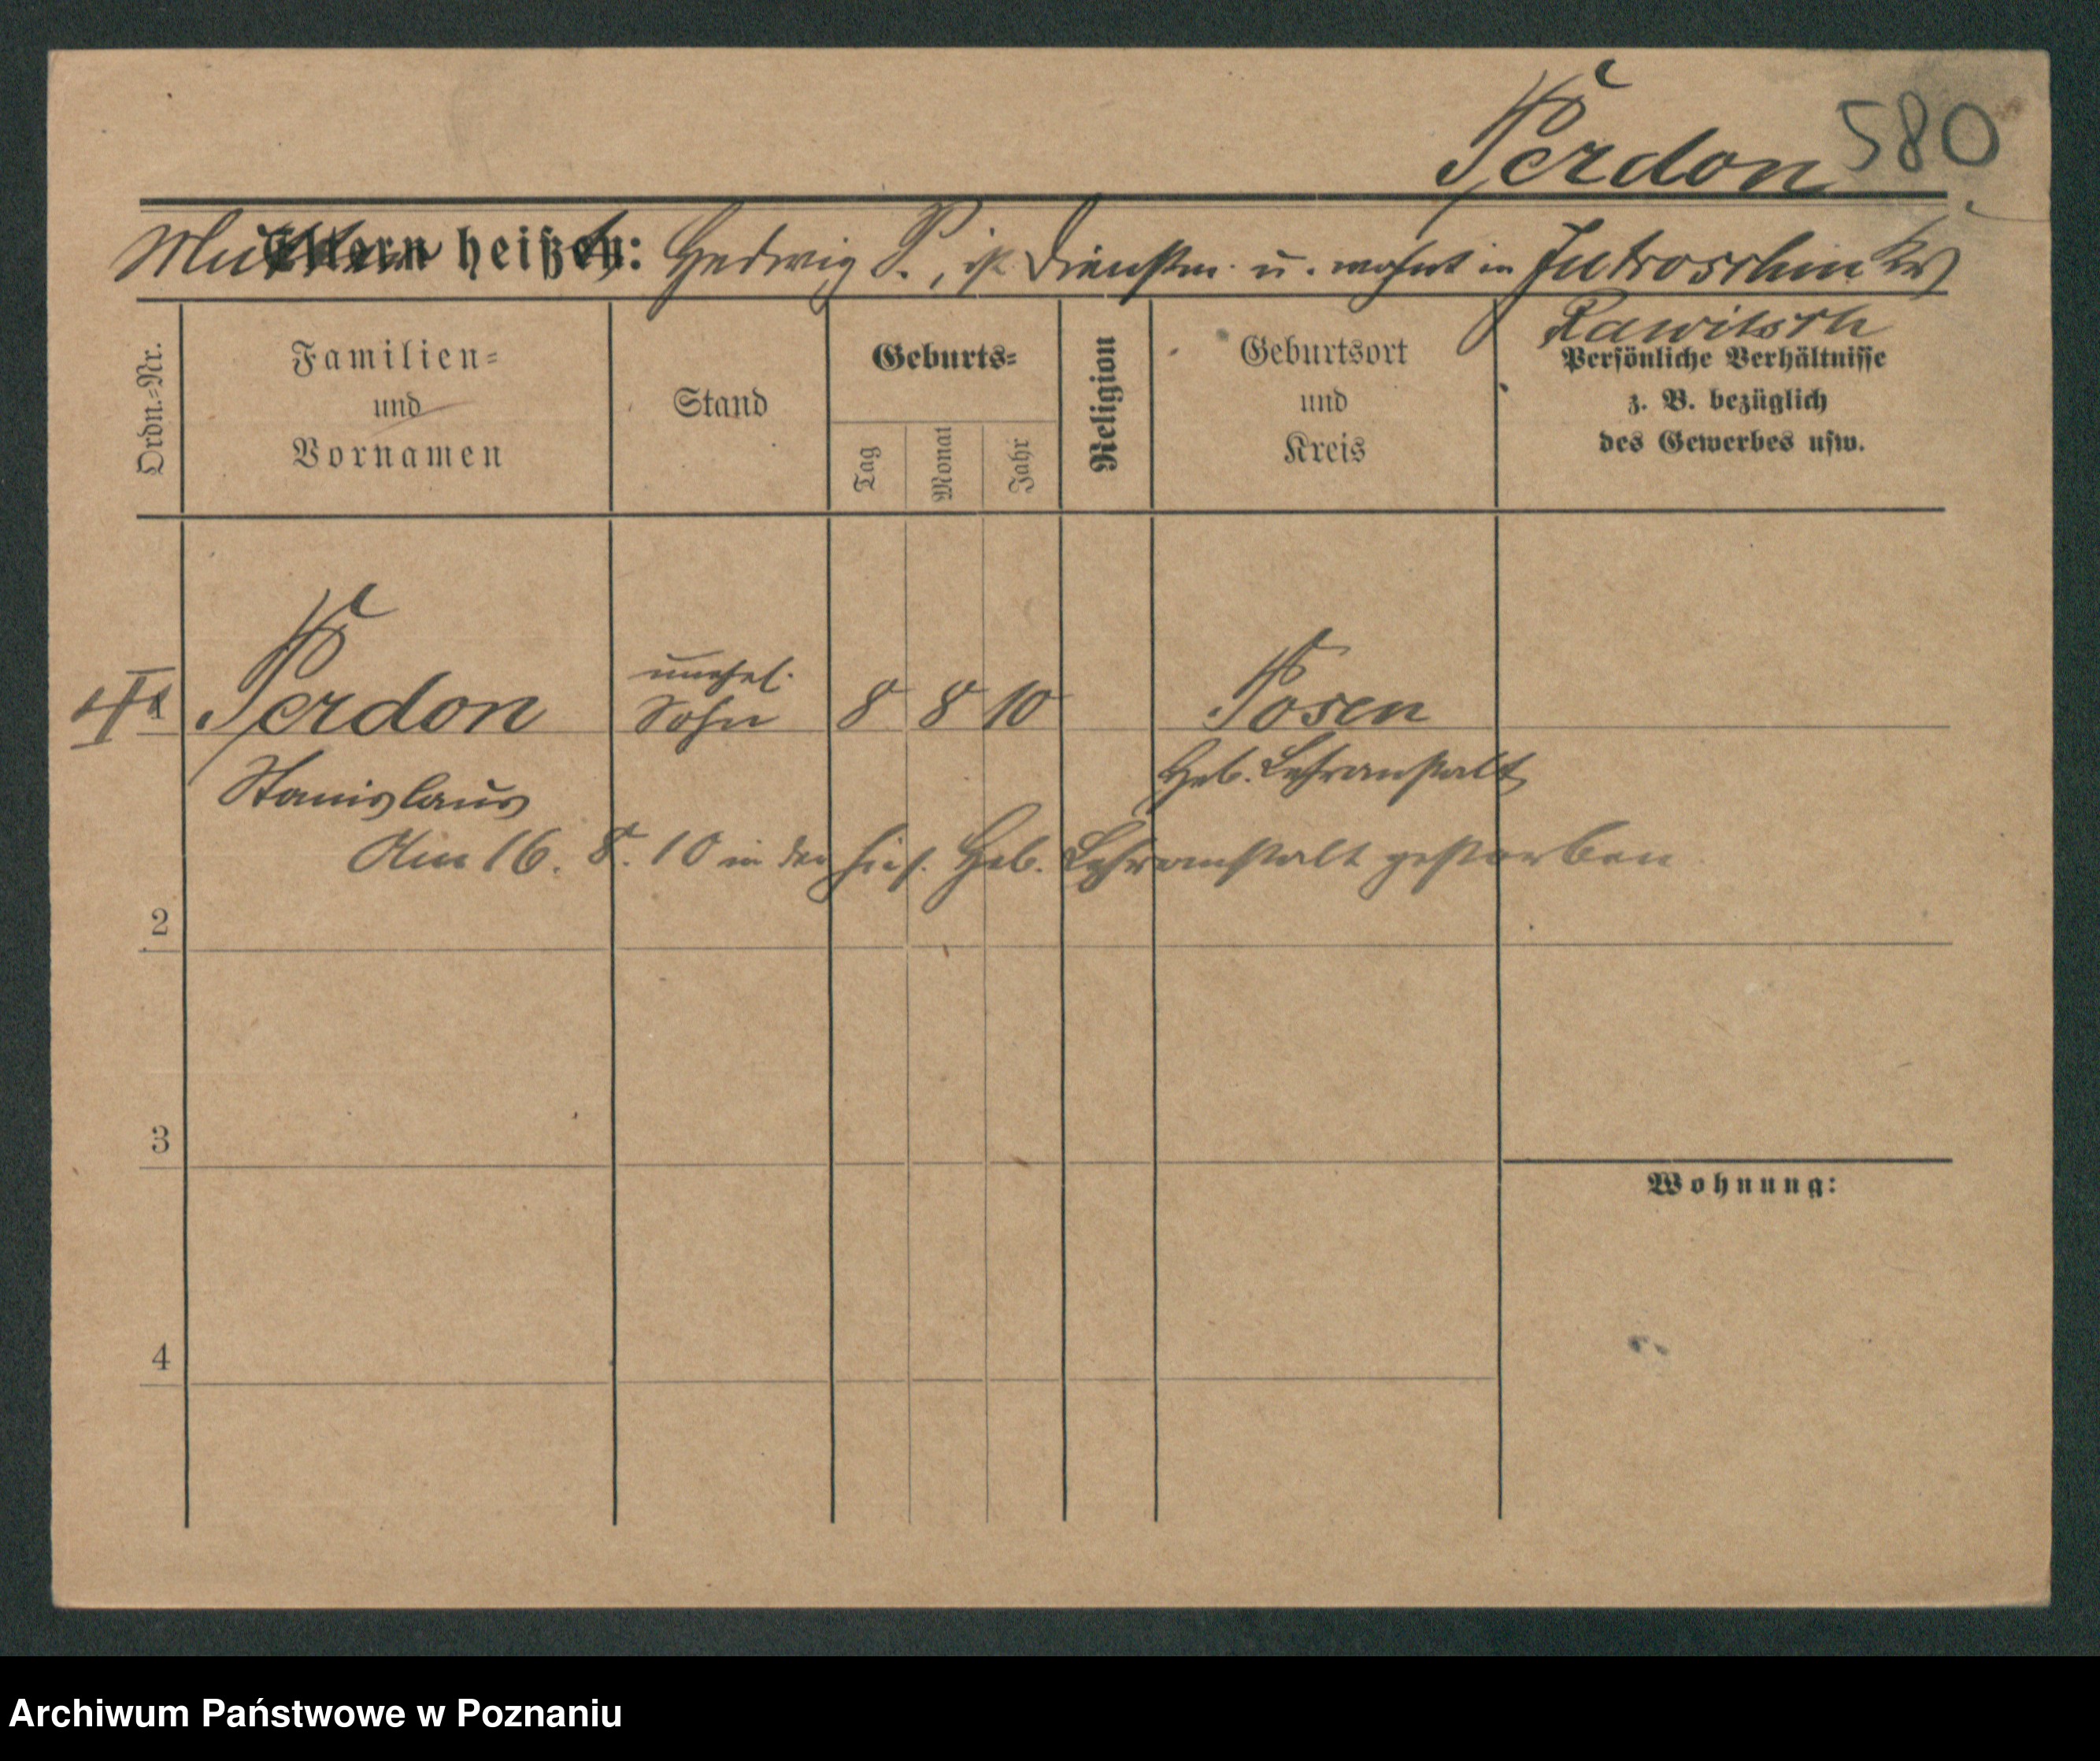 Perdon 580
Mutter heißt: Hedwig P., ist Dienstm. u. wohnt in Jutroschin Kr.
Rawitsch
Ordn.-Nr.
Familien-
und
Vornamen
Stand
Geburts-
Tag
Monat
Jahr
Religion
Geburtsort
und
Kreis
Persönliche Verhältnisse
z. B. bezüglich
des Gewerbes usw.
Perdon
unehel.
Sohn
8 8 10
Posen
Stanislaus
Heb. Lehranstalt
Am 16. 8. 10 in der hies. Heb. Lehranstalt gestorben
2
3
Wohnung:
4
Archiwum Państwowe w Poznaniu